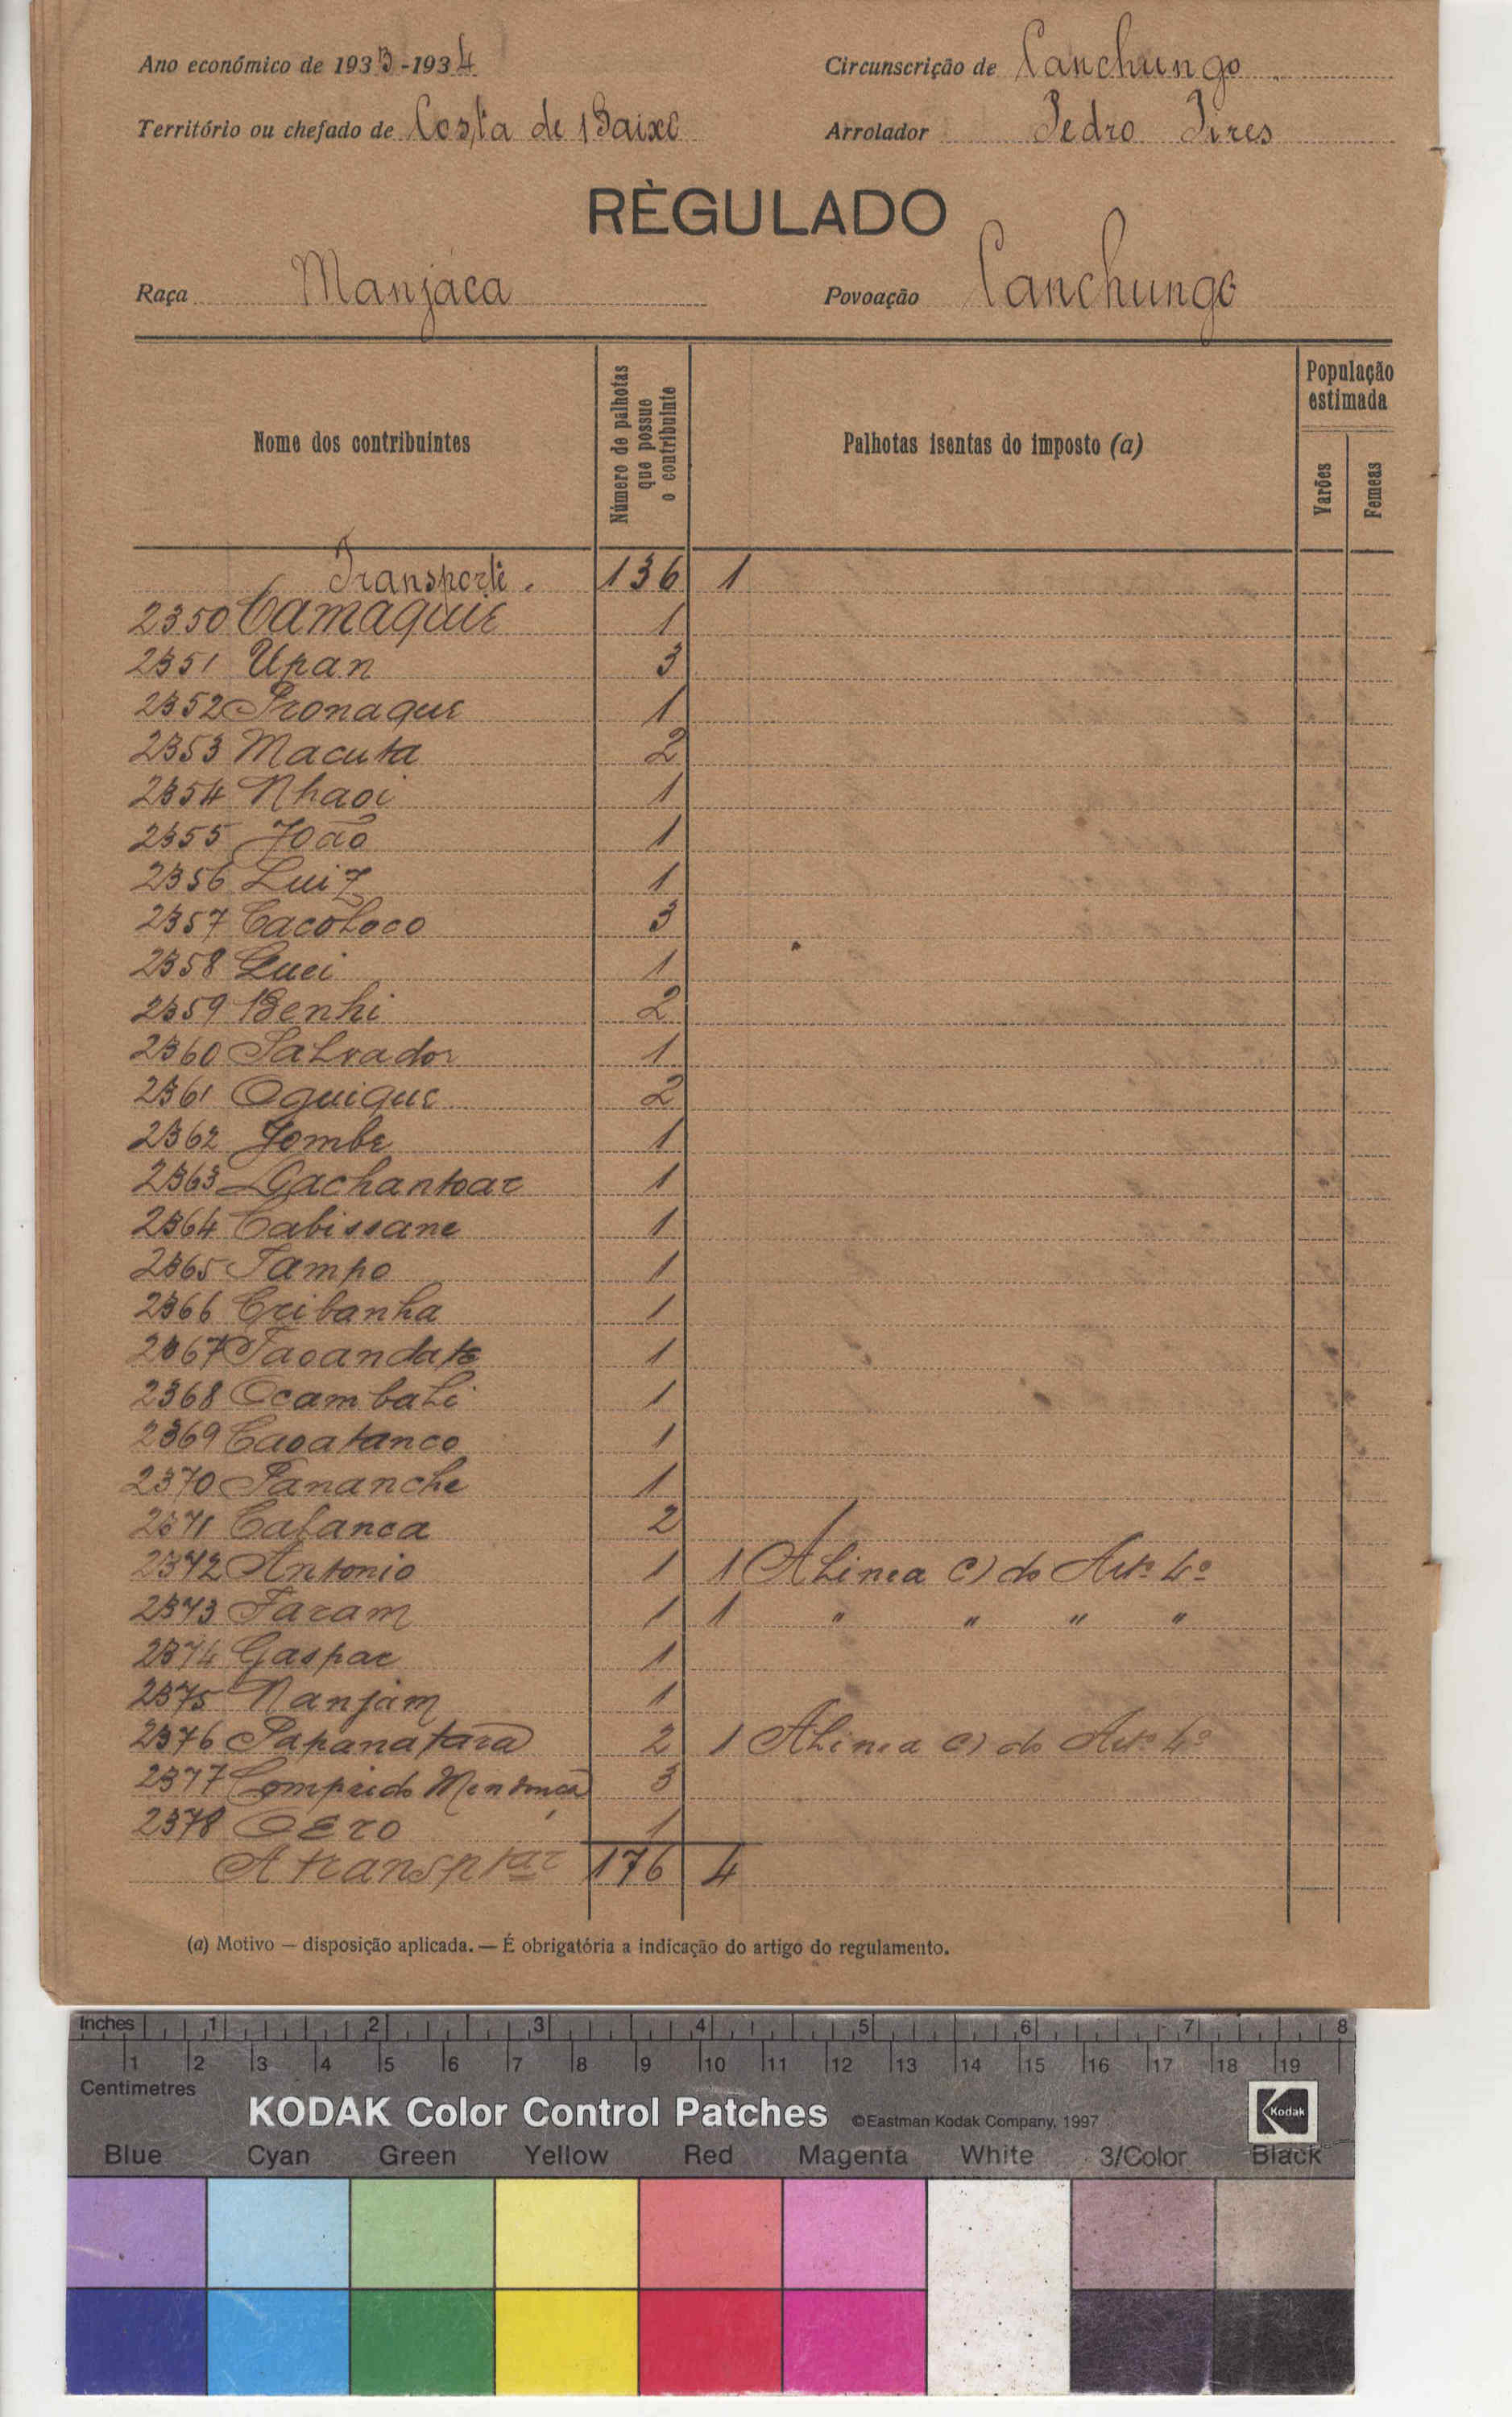 Ano económico de 1933-1934
Circunscrição de Canchungo
Território ou chefado de Costa de Baixo
Arrolador Pedro Pires
RÈGULADO
Raça Manjaca
Povoação Canchungo
Nome dos contribuintes
Número de palhotas que possue o contribuinte
Palhotas isentas do imposto (a)
População estimada
Varões
Femeas
Transporte. 136 1
2350 Camaquie 1
2351 Upan 3
2352 Pronaque 1
2353 Macuta 2
2354 Nhaoi 1
2355 João 1
2356 Luiz 1
2357 Cacoloco 3
2358 1
2359 Benhi 2
2360 Salvador 1
2361 Oquique 2
2362 Jombe 1
2363 1
2364 Cabissane 1
2365 Tampo 1
2366 Cribanha 1
2367 1
2368 Ocambali 1
2369 Caoatanco 1
2370 Fananche 1
2371 2
2372 Antonio 1 1 Alinea c) do Artº 4º
2373 Faram 1 1 " " " "
2374 Gaspar 1
2375 Nanjam 1
2376 Papanatara 2 1 Alinea c) do Artº 4º
2377 Comprido Mendonça 3
2378 1
A transptar 176 4
(a) Motivo — disposição aplicada. — É obrigatória a indicação do artigo do regulamento.
Inches 1 2 3 4 5 6 7 8
1 2 3 4 5 6 7 8 9 10 11 12 13 14 15 16 17 18 19
Centimetres
KODAK Color Control Patches ©Eastman Kodak Company, 1997 Kodak
Blue Cyan Green Yellow Red Magenta White 3/Color Black